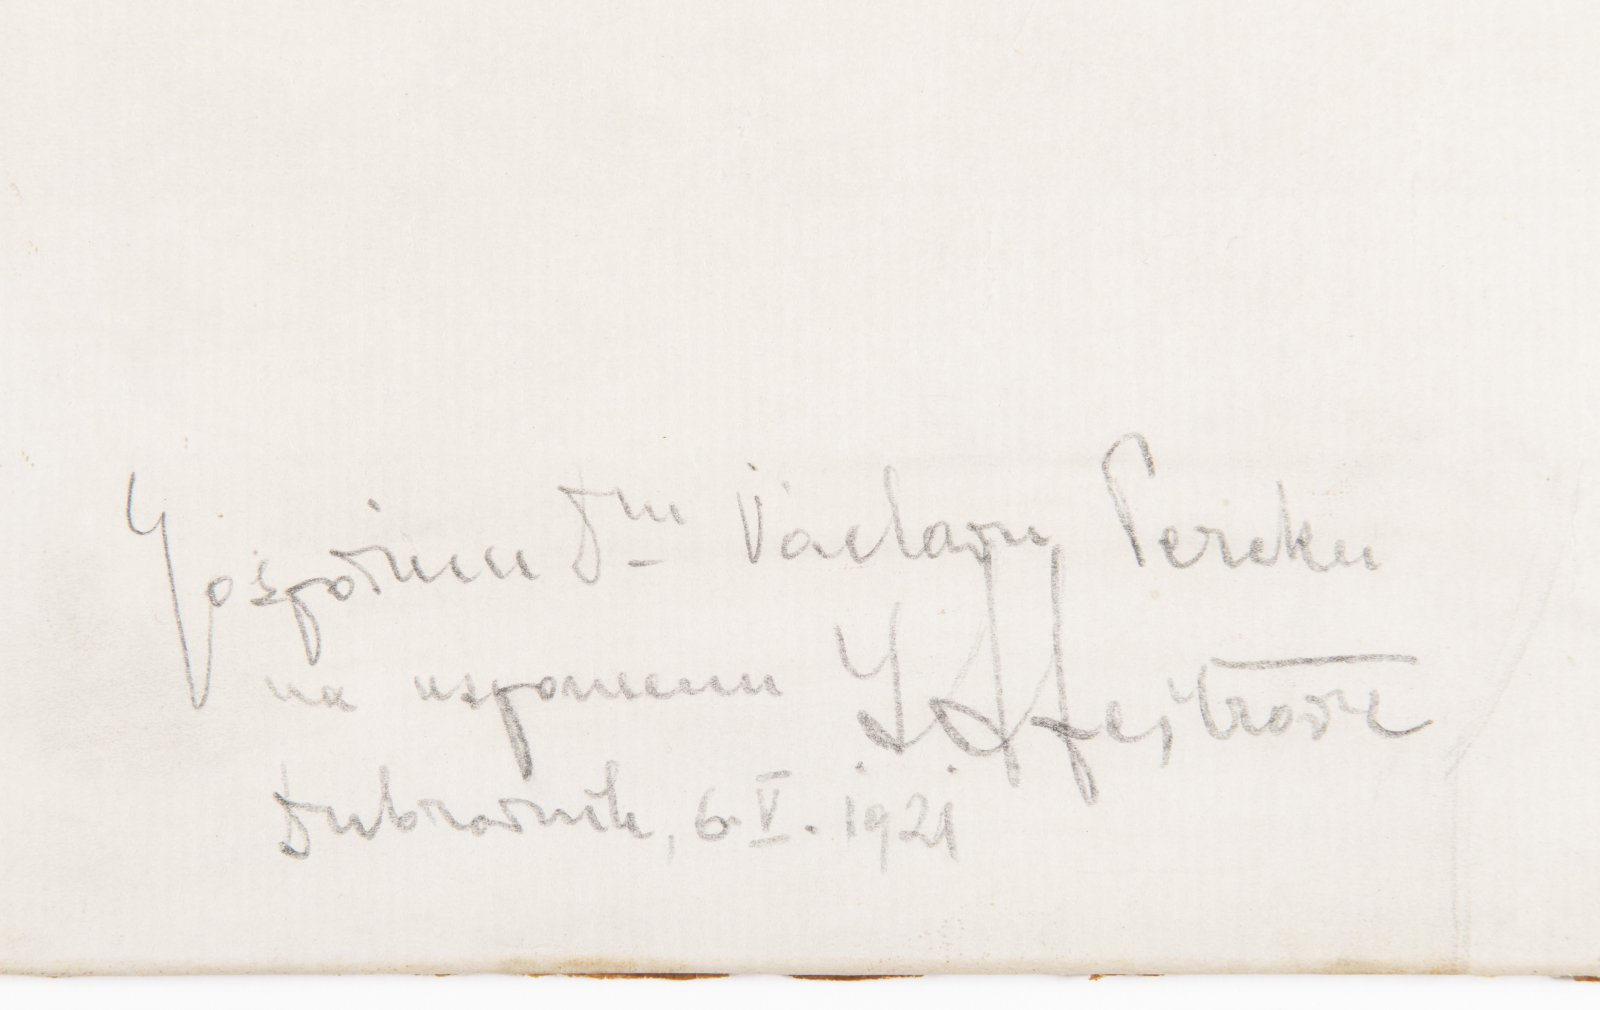 Gospodinu Dru Václavu Pereku
na uspomenu I. Meštrović
Dubrovnik, 6.V. 1921